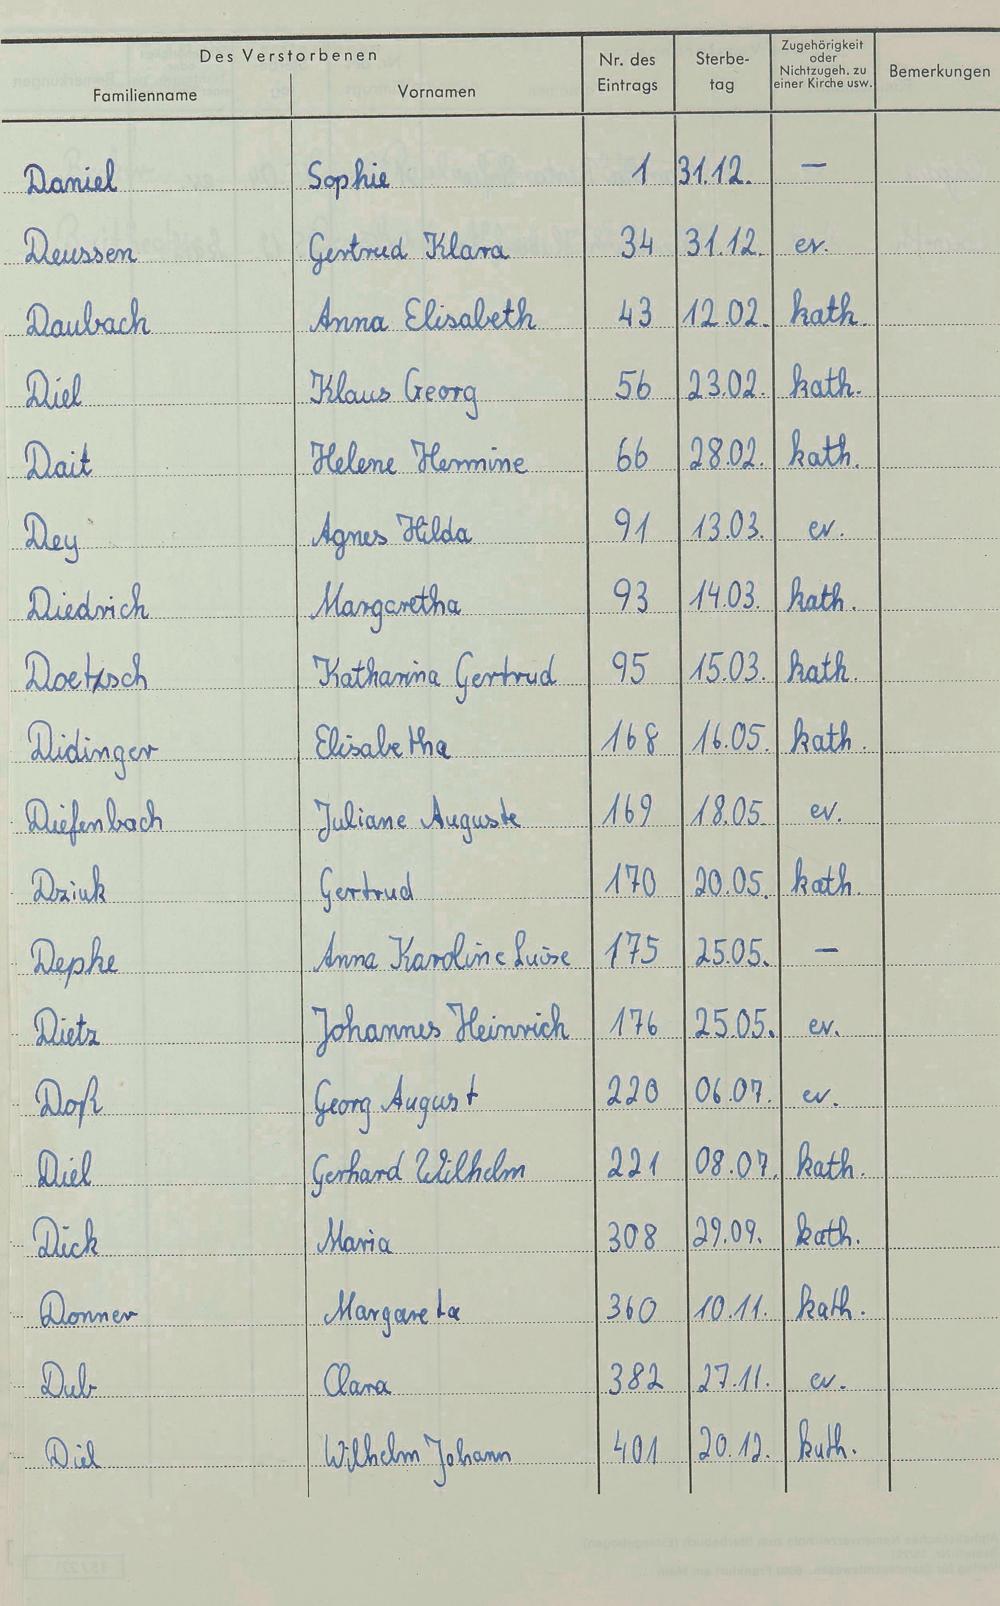 Des Verstorbenen
Familienname Vornamen Nr. des Eintrags Sterbe-tag Zugehörigkeit oder Nichtzugeh. zu einer Kirche usw. Bemerkungen
Daniel Sophie 1 31.12. —
Deussen Gertrud Klara 34 31.12. ev.
Daubach Anna Elisabeth 43 12.02. kath.
Diel Klaus Georg 56 23.02. kath.
Dait Helene Hermine 66 28.02. kath.
Dey Agnes Hilda 91 13.03. ev.
Diedrich Margaretha 93 14.03. kath.
Doetzsch Katharina Gertrud 95 15.03. kath.
Didinger Elisabetha 168 16.05. kath.
Diefenbach Juliane Auguste 169 18.05. ev.
Dziuk Gertrud 170 20.05. kath.
Depke Anna Karoline Luise 175 25.05. —
Dietz Johannes Heinrich 176 25.05. ev.
Doß Georg August 220 06.07. ev.
Diel Gerhard Wilhelm 221 08.07. kath.
Dick Maria 308 29.09. kath.
Donner Margareta 360 10.11. kath.
Dub Clara 382 27.11. ev.
Diel Wilhelm Johann 401 20.12. kath.